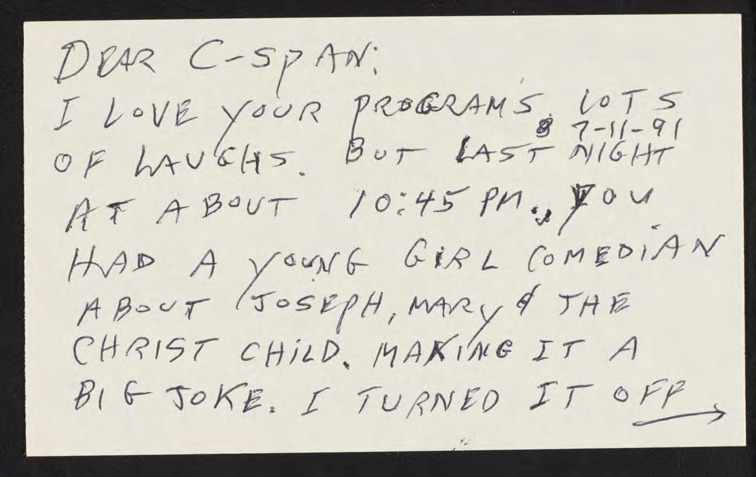 DEAR C-SPAN:
I LOVE YOUR PROGRAMS. LOTS
7-11-91
OF LAUGHS. BUT LAST NIGHT
AT ABOUT 10:45 PM., YOU
HAD A YOUNG GIRL COMEDIAN
ABOUT JOSEPH, MARY & THE
CHRIST CHILD. MAKING IT A
BIG JOKE. I TURNED IT OFF →